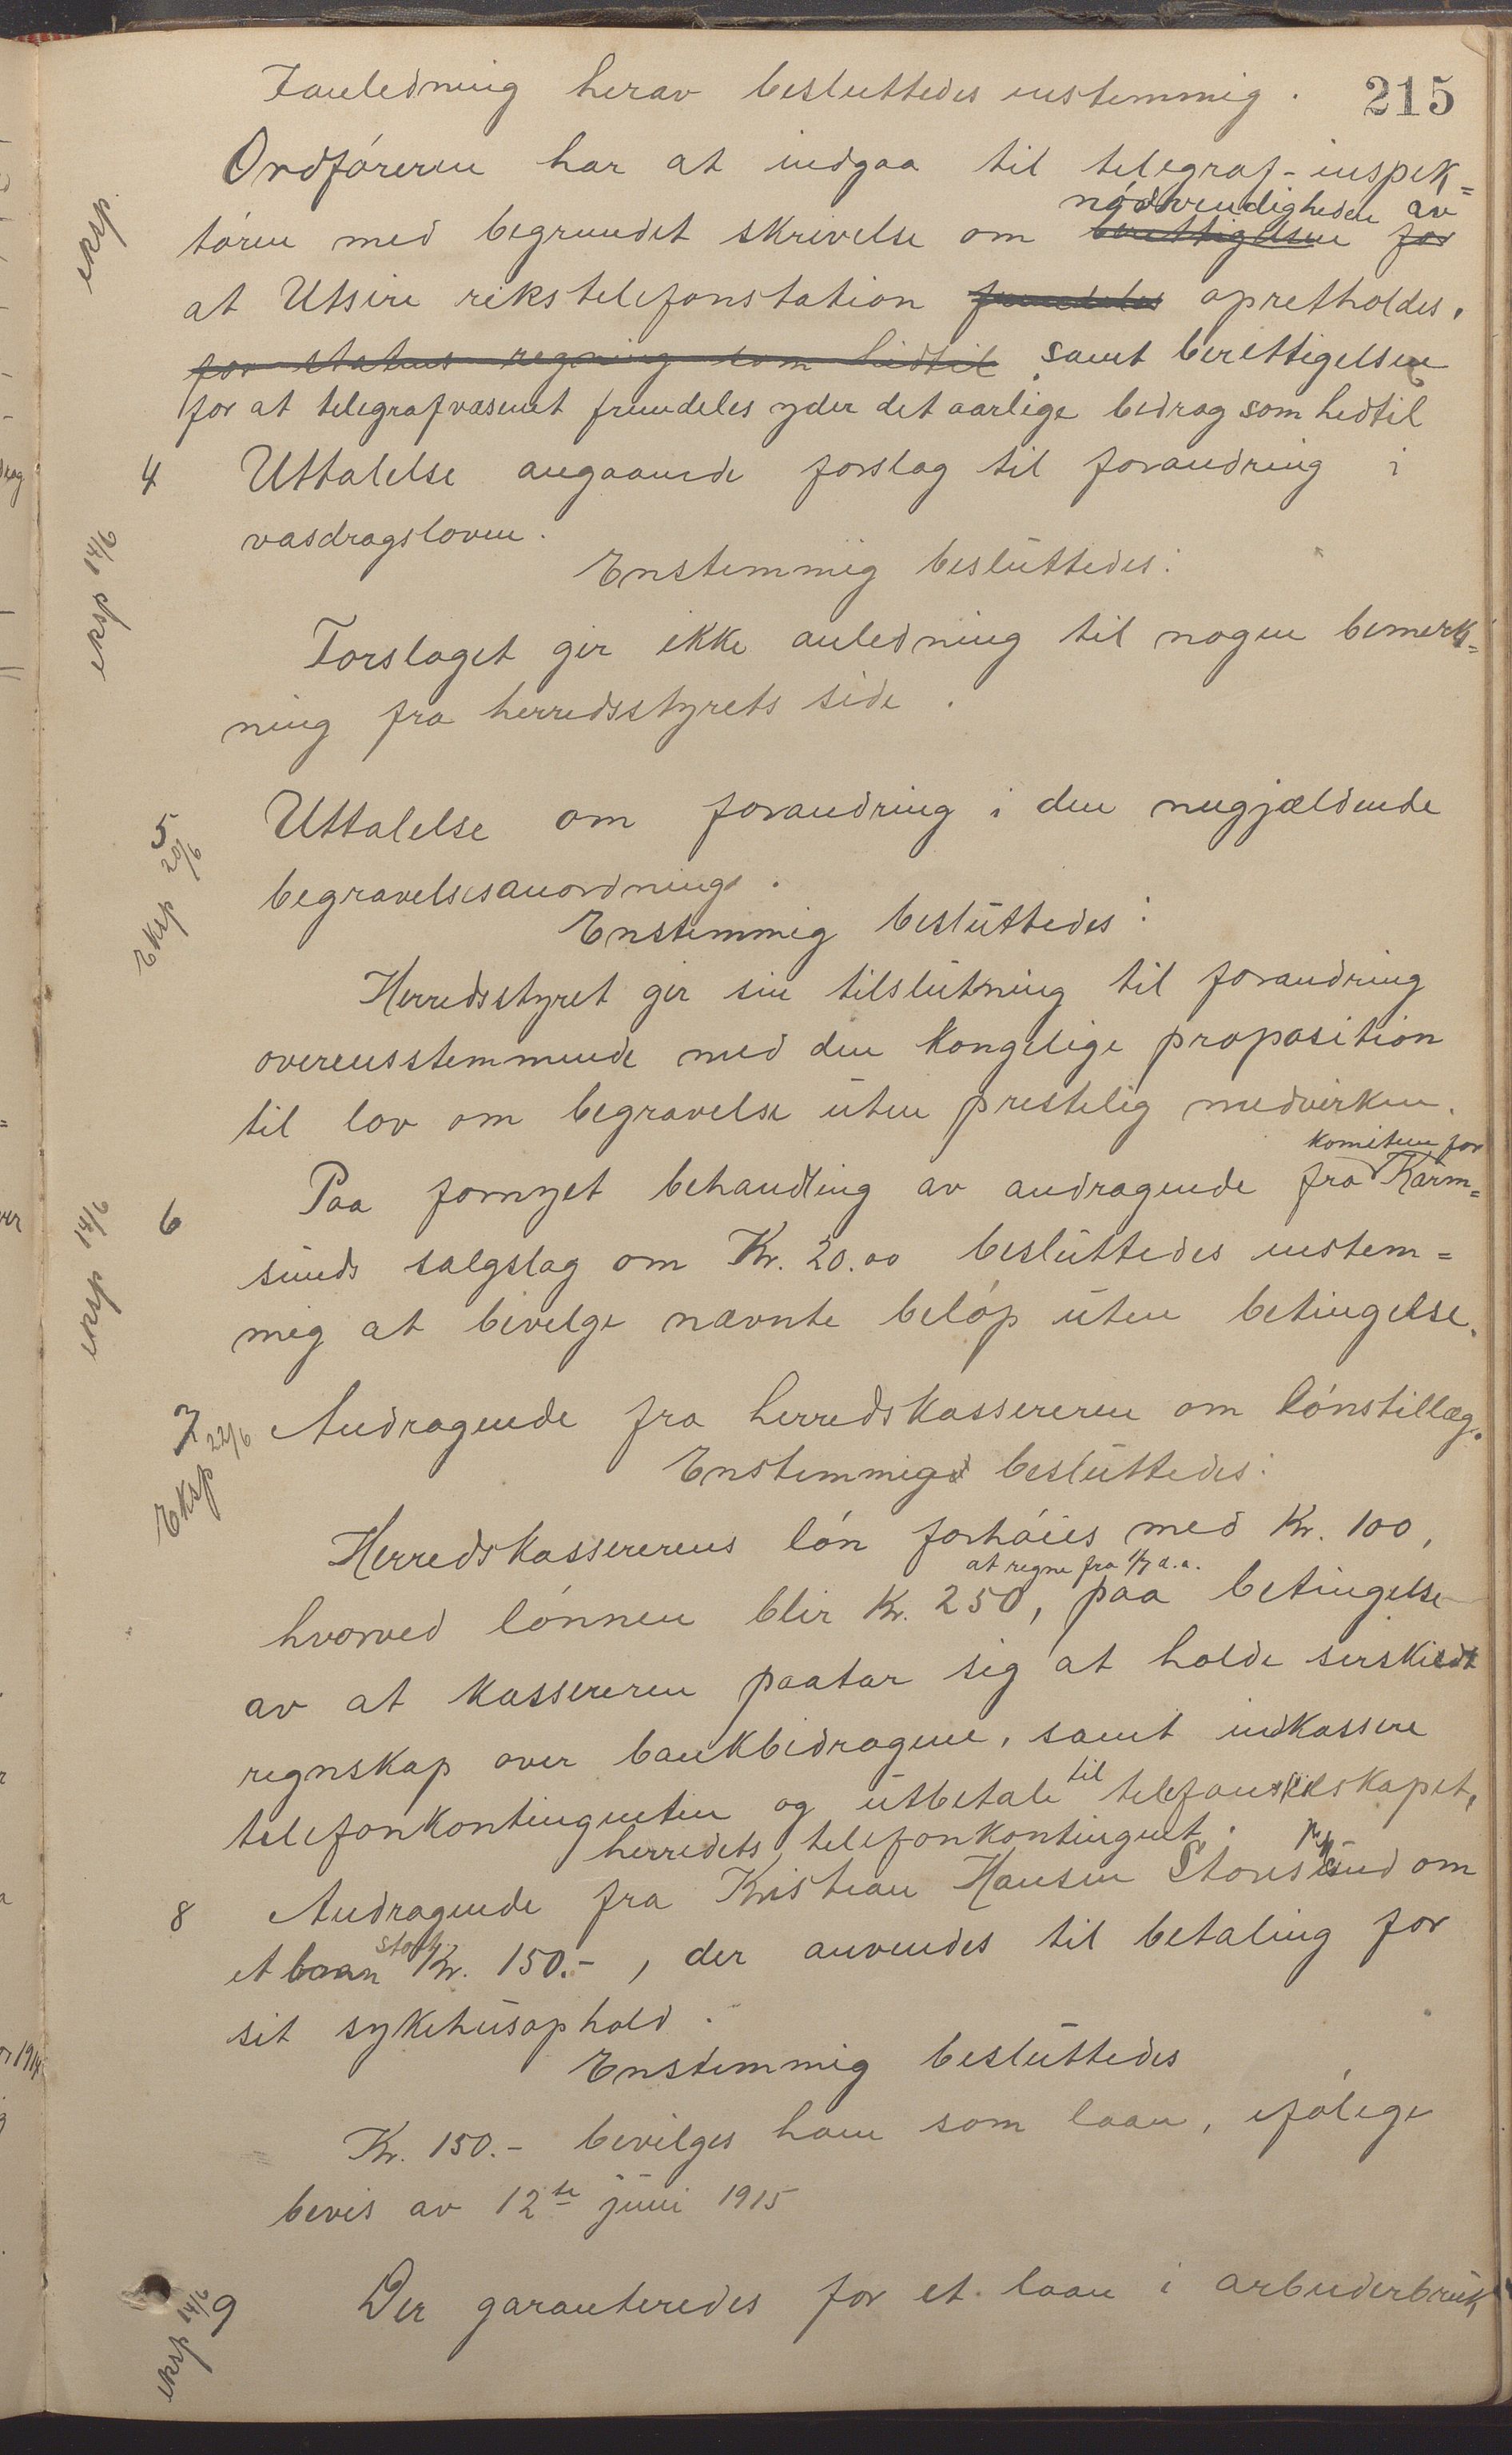 215
Ianledning herav besluttedes enstemmig.
Ordføreren har at indgaa til telegraf-inspek=
eksp.
nødvendigheden av
tøren med begrundet skrivelse om berettigelsen for
at Utsire rikstelefonstation fremdeles opretholdes.
for statens regning som hidtil samt berettigelsen
for at telegrafvæsenet fremdeles yder det aarlige bidrag som hidtil
4 Uttalelse angaaende forslag til forandring i
vasdragsloven.
eksp 14/6
Enstemmig besluttedes:
Forslaget gir ikke anledning til nogen bemerk=
ning fra herredsstyrets side.
5 Uttalelse om forandring i den nugjældende
Eksp 20/6
begravelsesanordning.
Enstemmig besluttedes:
Herredsstyret gir sin tilslutning til forandring
overensstemmende med den kongelige proposition
til lov om begravelse uten prestelig medvirken.
komiteen for
6 Paa fornyet behandling av andragende fra Karm=
eksp 14/6
sunds salgslag om Kr. 20.00 besluttedes enstem=
mig at bevilge nævnte beløp uten betingelse.
7 Andragende fra herredskassereren om lønstillæg.
Eksp 22/6
Enstemmig besluttedes:
Herredskassererens løn forhøies med Kr. 100,
at regne fra 1/7 d.a.
hvorved lønnen blir Kr. 250, paa betingelse
av at kassereren paatar sig at holde serskildt
regnskap over bankbidragene, samt indkassere
telefonkontingenten og utbetale til telefonselskapet,
herredets telefonkontingent.
8 Andragende fra Kristian Hansen Storesund om
et laan stort Kr. 150.-, der anvendes til betaling for
sit sykehusophold.
Enstemmig besluttedes
Kr. 150.- bevilges ham som laan, ifølge
bevis av 12te juni 1915
9 Der garanteredes for et laan i arbeiderbruk
eksp 14/6